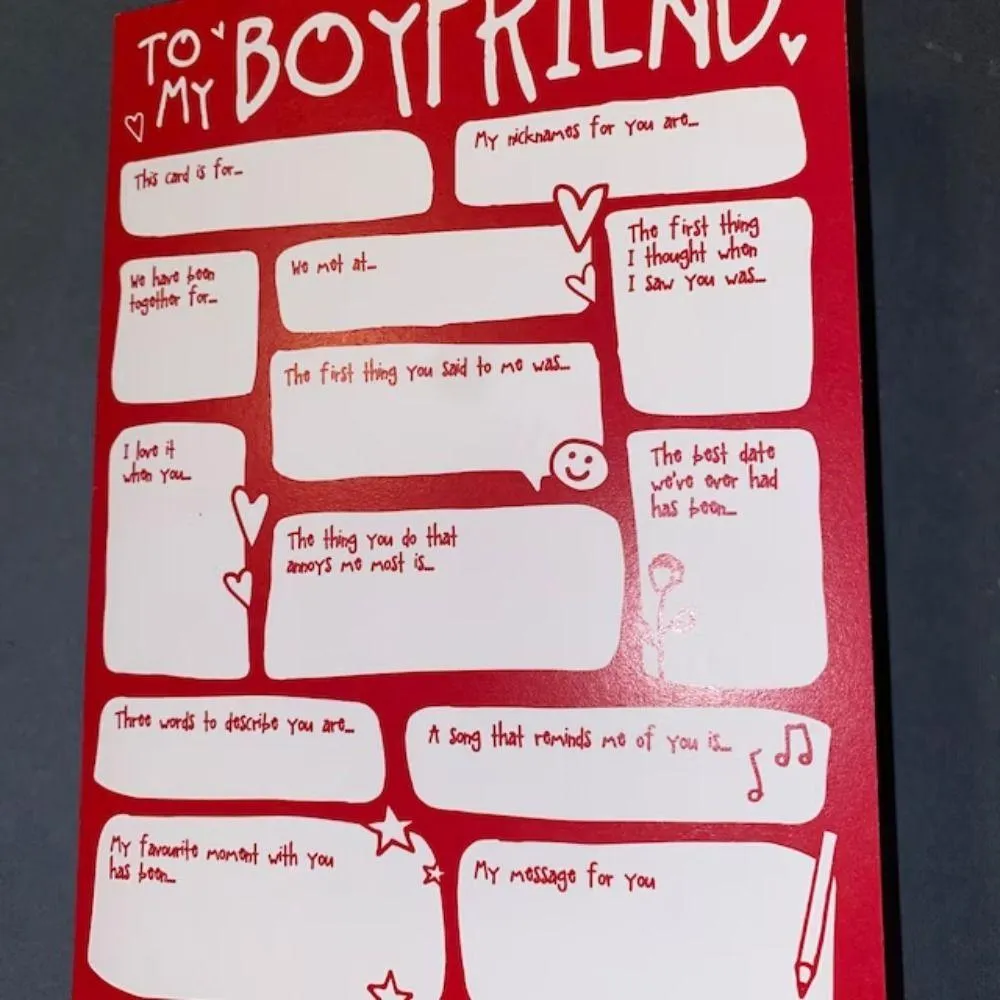 TO
MY
BOYFRIEND
This card is for...
My nicknames for you are...
We have been
together for...
We met at...
The first thing
I thought when
I saw you was...
The first thing you said to me was...
I love it
when you...
The best date
we've ever had
has been...
The thing you do that
annoys me most is...
Three words to describe you are...
A song that reminds me of you is...
My favourite moment with you
has been...
My message for you